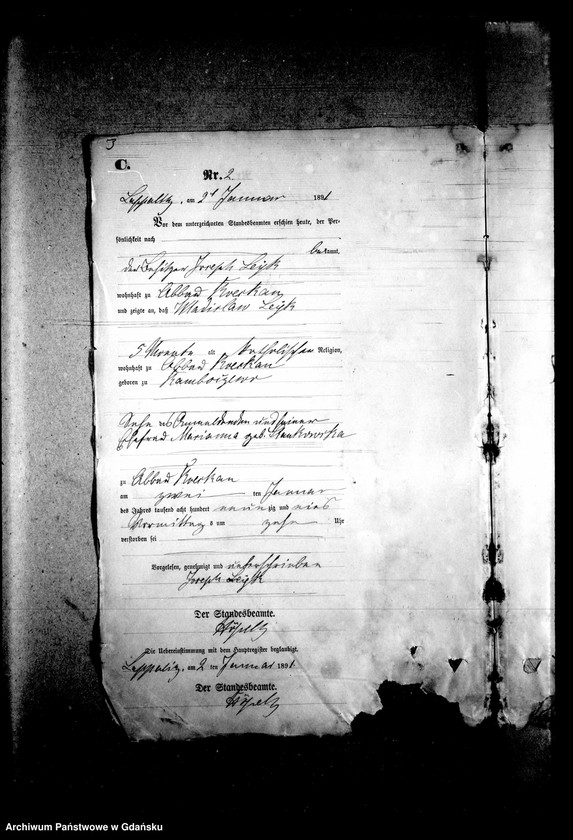 C.
Nr. 2.
am 2ten Januar 1891
Vor dem unterzeichneten Standesbeamten erschien heute, der Per-
sönlichkeit nach
bekannt,
der Besitzer Joseph Leyk
wohnhaft zu Abbau
und zeigte an, daß Wladislaw Leyk
5 Monate alt katholischer Religion,
wohnhaft zu Abbau
geboren zu
Sohn des Anmeldenden und seiner
Ehefrau Marianna geb. Stankowska
zu Abbau
am zwei ten Januar
des Jahres tausend acht hundert neunzig und eins
Vormittag s um zehn Uhr
verstorben sei
Vorgelesen, genehmigt und unterschrieben
Joseph Leyk
Der Standesbeamte.
Die Uebereinstimmung mit dem Hauptregister beglaubigt.
am 2 ten Januar 1891
Der Standesbeamte.
Archiwum Państwowe w Gdańsku